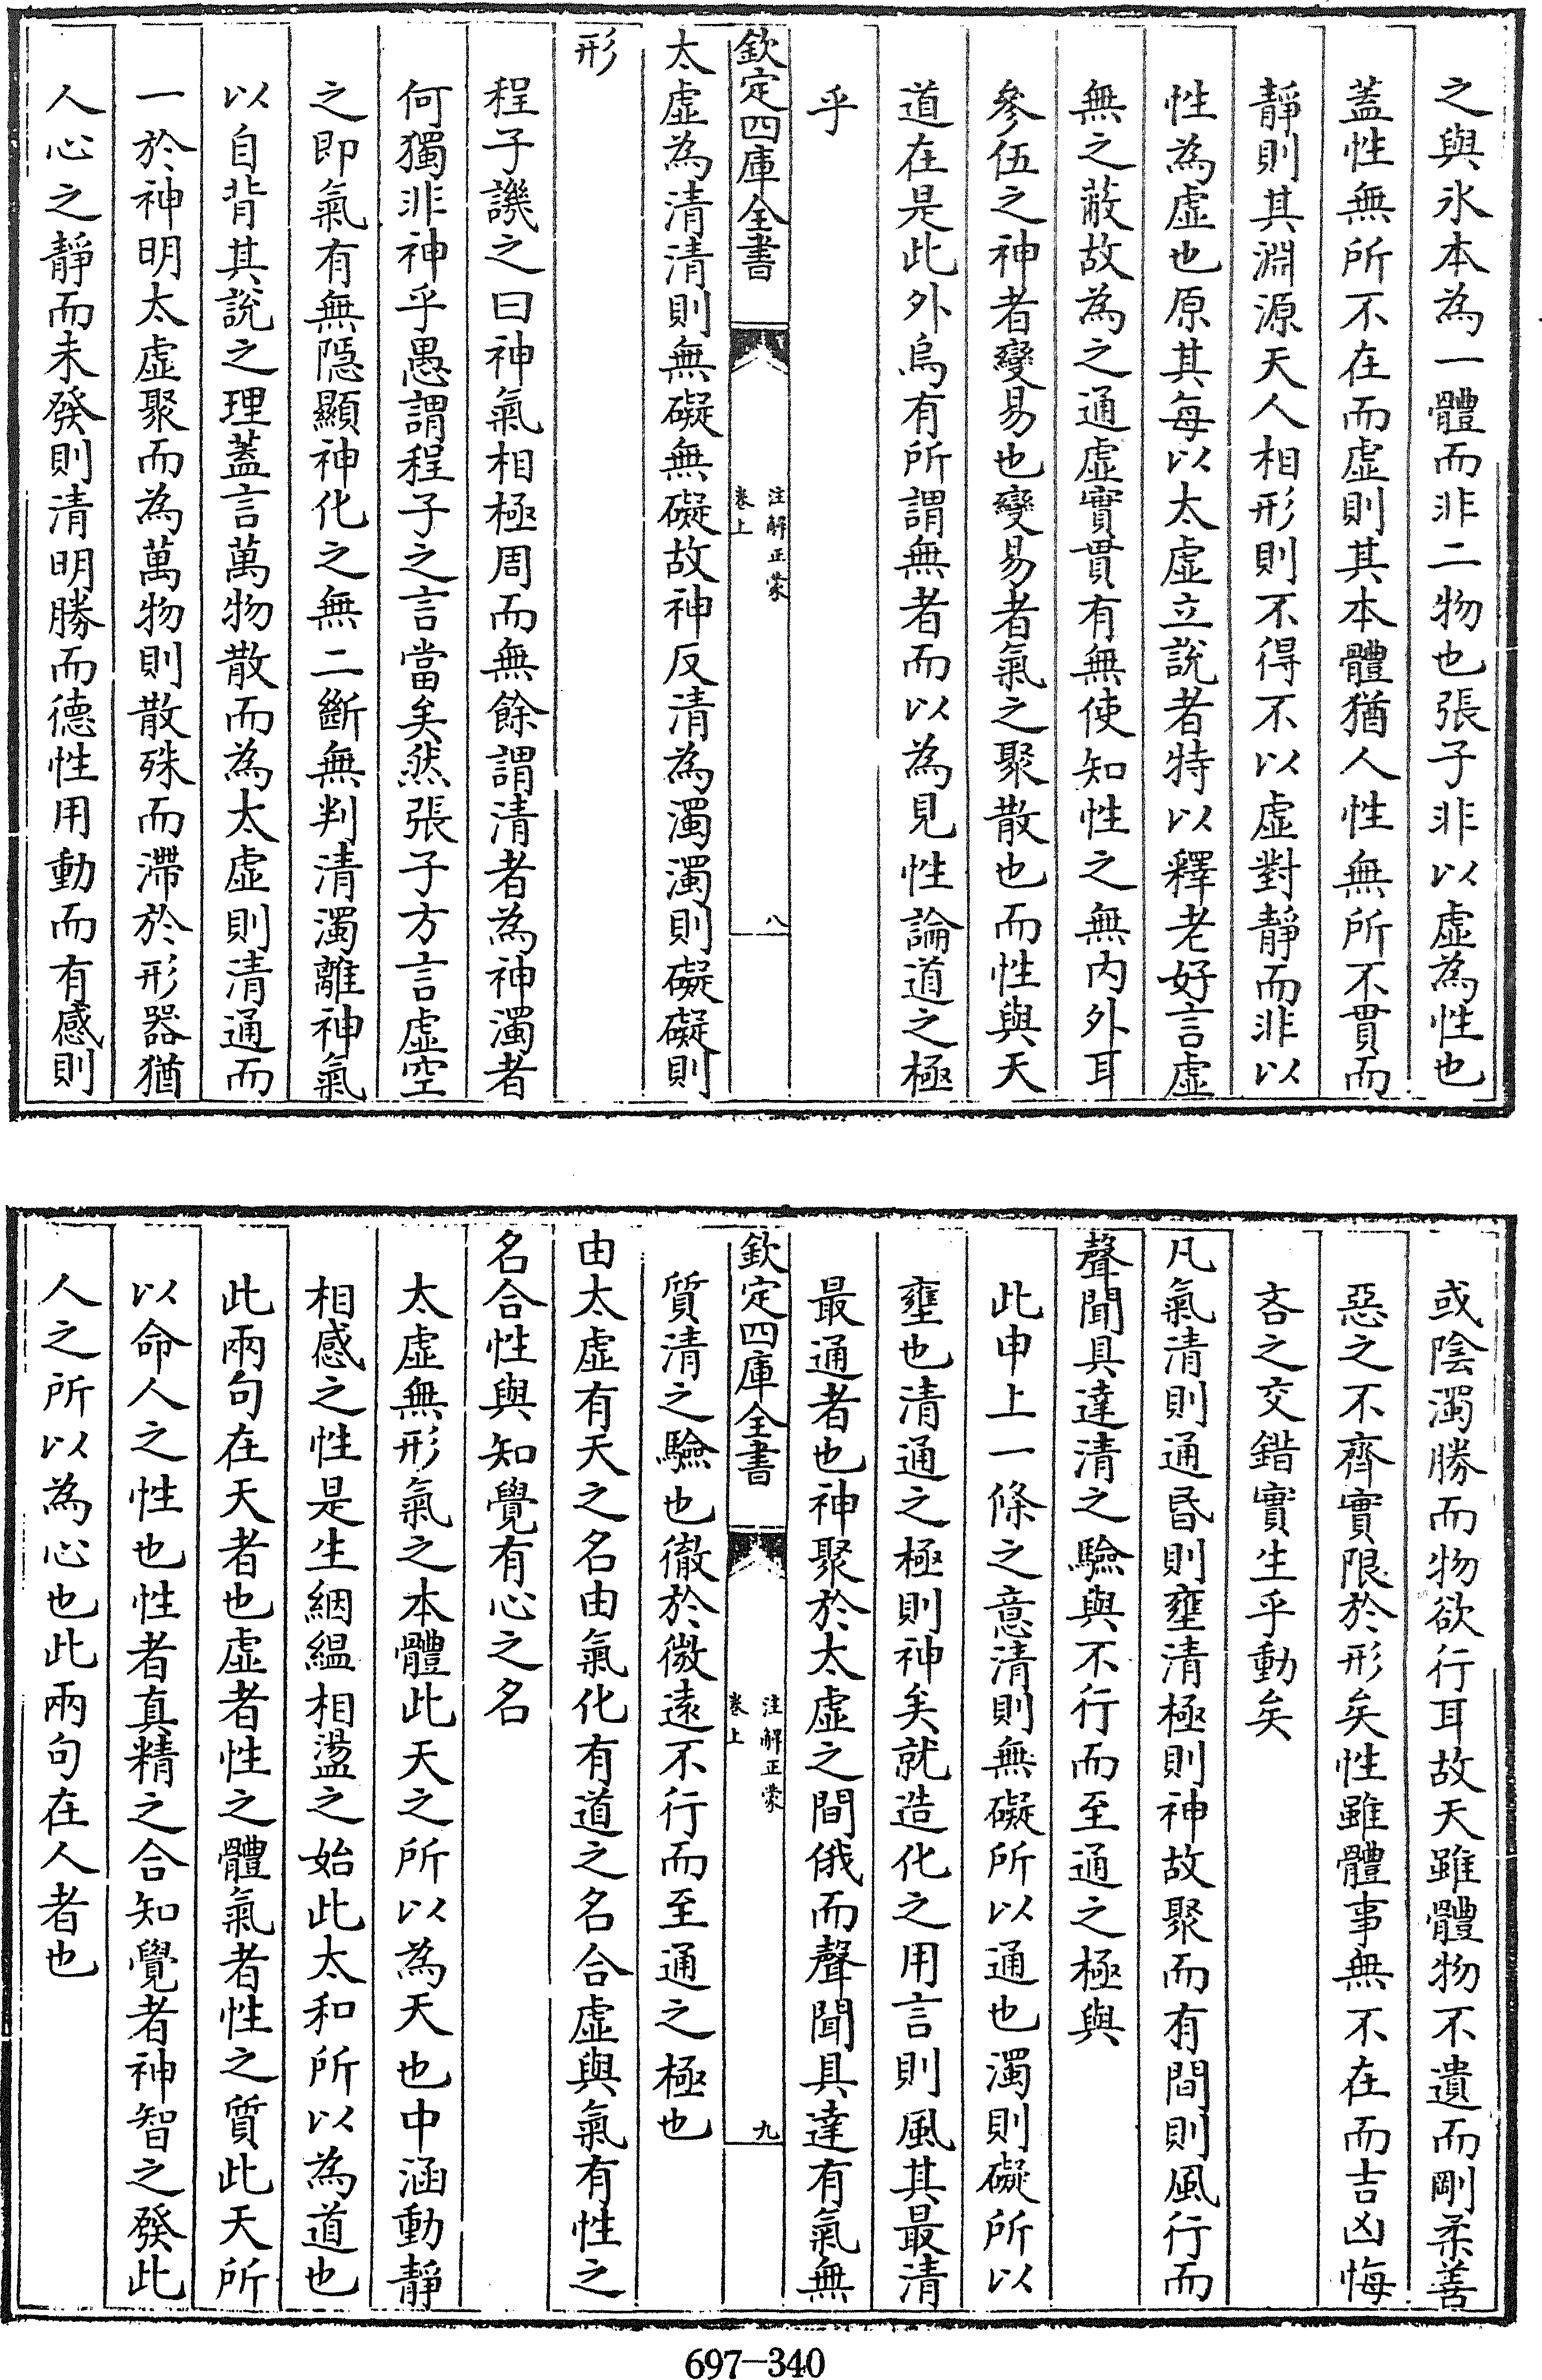 之與氷本為一體而非二物也張子非以虛為性也
蓋性無所不在而虛則其本體猶人性無所不貫而
靜則其淵源天人相形則不得不以虛對靜而非以
性為虛也原其每以太虛立說者特以釋老好言虛
無之蔽故為之通虛實貫有無使知性之無內外耳
參伍之神者變易也變易者氣之聚散也而性與天
道在是此外烏有所謂無者而以為見性論道之極
乎
欽定四庫全書
注解正蒙
卷上
八
太虛為清清則無礙無礙故神反清為濁濁則礙礙則
形
程子譏之曰神氣相極周而無餘謂清者為神濁者
何獨非神乎愚謂程子之言當矣然張子方言虛空
之即氣有無隱顯神化之無二斷無判清濁離神氣
以自背其說之理蓋言萬物散而為太虛則清通而
一於神明太虛聚而為萬物則散殊而滯於形器猶
人心之靜而未發則清明勝而德性用動而有感則
或陰濁勝而物欲行耳故天雖體物不遺而剛柔善
惡之不齊實限於形矣性雖體事無不在而吉凶悔
吝之交錯實生乎動矣
凡氣清則通昏則壅清極則神故聚而有間則風行而
聲聞具達清之驗與不行而至通之極與
此申上一條之意清則無礙所以通也濁則礙所以
壅也清通之極則神矣就造化之用言則風其最清
最通者也神聚於太虛之間俄而聲聞具達有氣無
欽定四庫全書
注解正蒙
卷上
九
質清之驗也徹於微遠不行而至通之極也
由太虛有天之名由氣化有道之名合虛與氣有性之
名合性與知覺有心之名
太虛無形氣之本體此天之所以為天也中涵動靜
相感之性是生絪縕相盪之始此太和所以為道也
此兩句在天者也虛者性之體氣者性之質此天所
以命人之性也性者真精之合知覺者神智之發此
人之所以為心也此兩句在人者也
697-340